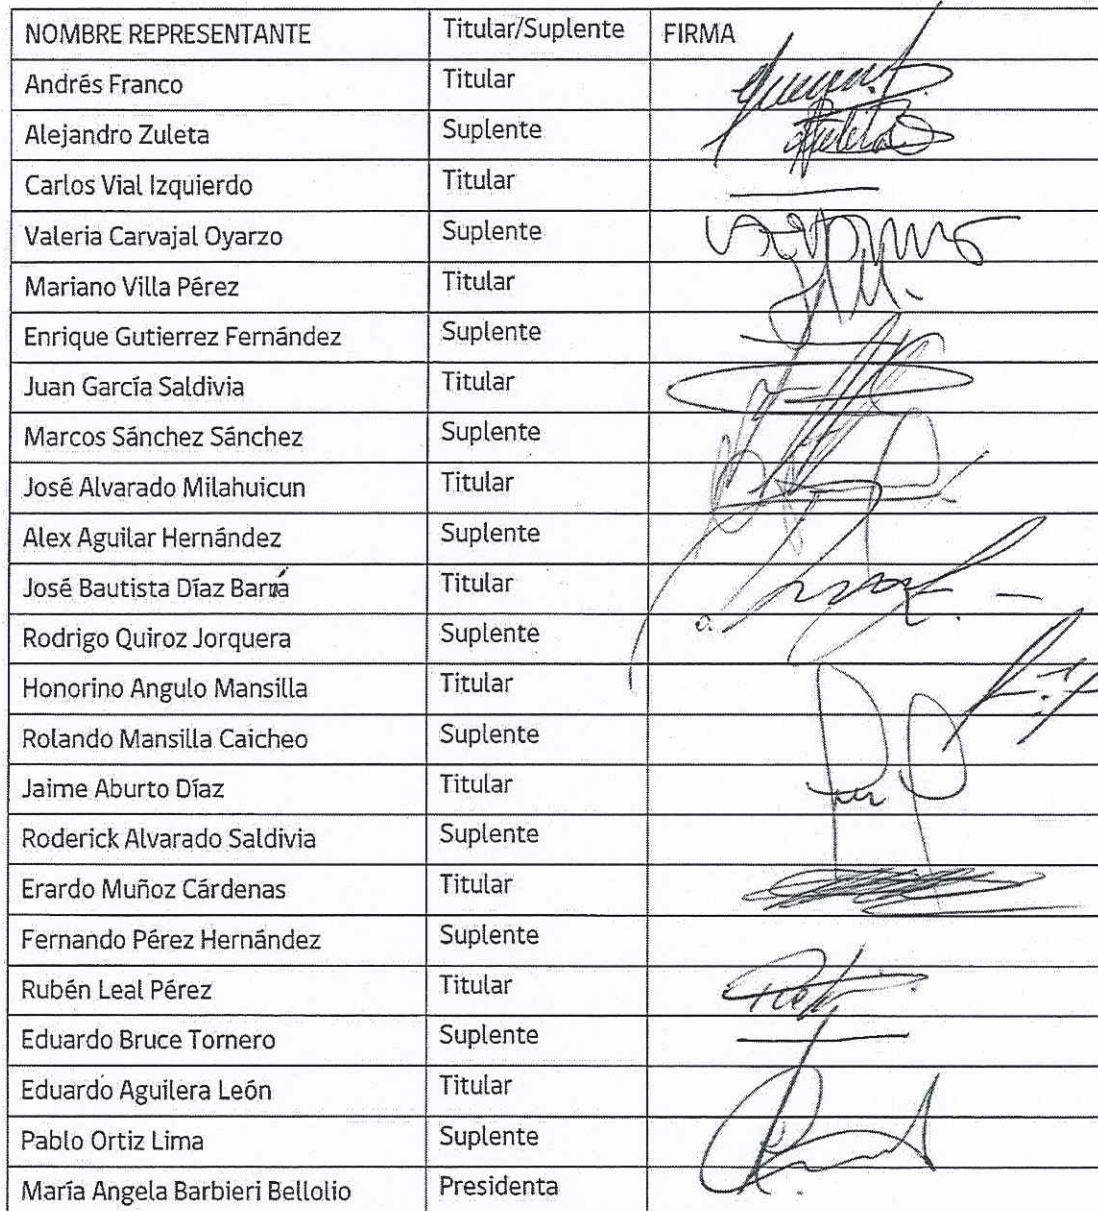 NOMBRE REPRESENTANTE Titular/Suplente FIRMA
Andrés Franco Titular
Alejandro Zuleta Suplente
Carlos Vial Izquierdo Titular
Valeria Carvajal Oyarzo Suplente
Mariano Villa Pérez Titular
Enrique Gutierrez Fernández Suplente
Juan García Saldivia Titular
Marcos Sánchez Sánchez Suplente
José Alvarado Milahuicun Titular
Alex Aguilar Hernández Suplente
José Bautista Díaz Barría Titular
Rodrigo Quiroz Jorquera Suplente
Honorino Angulo Mansilla Titular
Rolando Mansilla Caicheo Suplente
Jaime Aburto Díaz Titular
Roderick Alvarado Saldivia Suplente
Erardo Muñoz Cárdenas Titular
Fernando Pérez Hernández Suplente
Rubén Leal Pérez Titular
Eduardo Bruce Tornero Suplente
Eduardo Aguilera León Titular
Pablo Ortiz Lima Suplente
María Angela Barbieri Bellolio Presidenta